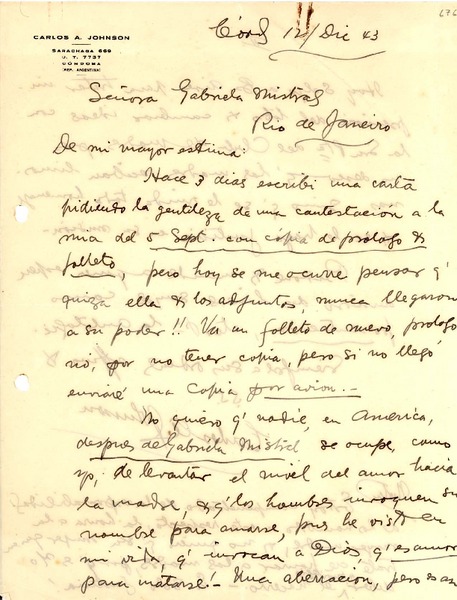 CARLOS A. JOHNSON
SARACHAGA 669
U. T. 7737
CÓRDOBA
(REP. ARGENTINA)
Córd 12/Dic 43
Señora Gabriela Mistral
Rio de Janeiro
De mi mayor estima:
Hace 3 dias escribi una carta
pidiendo la gentileza de una contestación a la
mia del 5 Sept. con copia de prólogo &
folleto, pero hoy se me ocurre pensar q'
quiza ella & los adjuntos, nunca llegaron
a su poder!! Va un folleto de nuevo, prologo
nó, por no tener copia, pero si no llegó
enviaré una copia por avion.-
No quiero q' nadie, en America,
despues de Gabriela Mistral se ocupe, como
yo, de levantar el nivel del amor hacia
la madre, & q' los hombres invoquen su
nombre para amarse, pues he visto en
mi vida, q' invocan a Dios, q' es amor
para matarse!- Una aberración, pero es asi